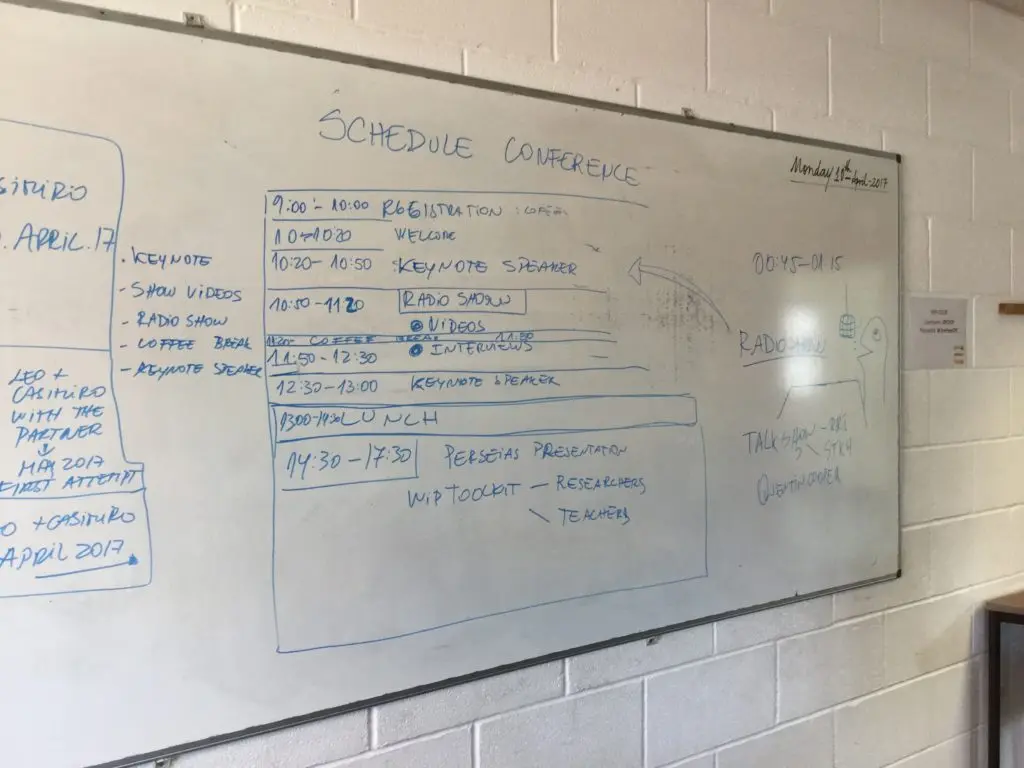 SCHEDULE CONFERENCE
Monday 10th April-2017
9:00 - 10:00 REGISTRATION : COFFEE
10-10:20 WELCOME
10:20 - 10:50 KEYNOTE SPEAKER
10:50 - 1120 RADIO SHOW
VIDEOS
1120- COFFEE BREAK 11:50
INTERVIEWS
11:50 - 12:30
12:30 - 13:00 KEYNOTE SPEAKER
13:00-14:30 LUNCH
14:30 - 17:30 PERSEIAS PRESENTATION
WIP TOOLKIT - RESEARCHERS
TEACHERS
APRIL.17
- KEYNOTE
- SHOW VIDEOS
- RADIO SHOW
- COFFEE BREAK
- KEYNOTE SPEAKER
LEO +
CASIMIRO
WITH THE
PARTNER
MAY 2017
FIRST ATTEMPT
O + CASIMIRO
APRIL 2017
00:45-01 15
RADIOSHOW
TALKSHOW